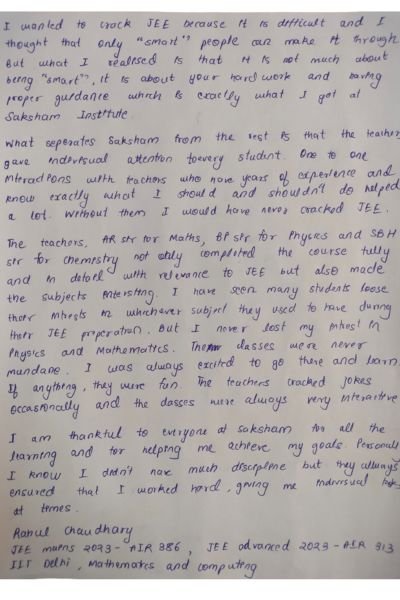 I wanted to crack JEE because it is difficult and I
thought that only "smart" people can make it through
But what I realised is that it is not much about
being "smart", it is about your hard work and having
proper guidance which is exactly what I got at
Saksham Institute.
What seperates Saksham from the rest is that the teacher
gave indivisual attention to every student. One to one
interactions with teachers who have years of experience and
know exactly what I should and shouldn't do helped
a lot. Without them I would have never cracked JEE.
The teachers, AR sir for Maths, BP sir for Physics and SBH
sir for chemistry not only completed the course fully
and in detail with relevance to JEE but also made
the subjects intersting. I have seen many students loose
their intrests in whichever subject they used to have during
their JEE preperation. But I never lost my intrest in
Physics and Mathematics. The classes were never
mundane. I was always excited to go there and learn
If anything, they were fun. The teachers cracked jokes
occasionally and the classes were always very interactive
I am thankful to everyone at saksham for all the
learning and for helping me achieve my goals. Personally
I know I didn't have much discipline but they always
ensured that I worked hard, giving me indivisual
at times.
Rahul Chaudhary
JEE mains 2023 - AIR 386, JEE advanced 2023 - AIR 313
IIT Delhi, Mathematics and computing